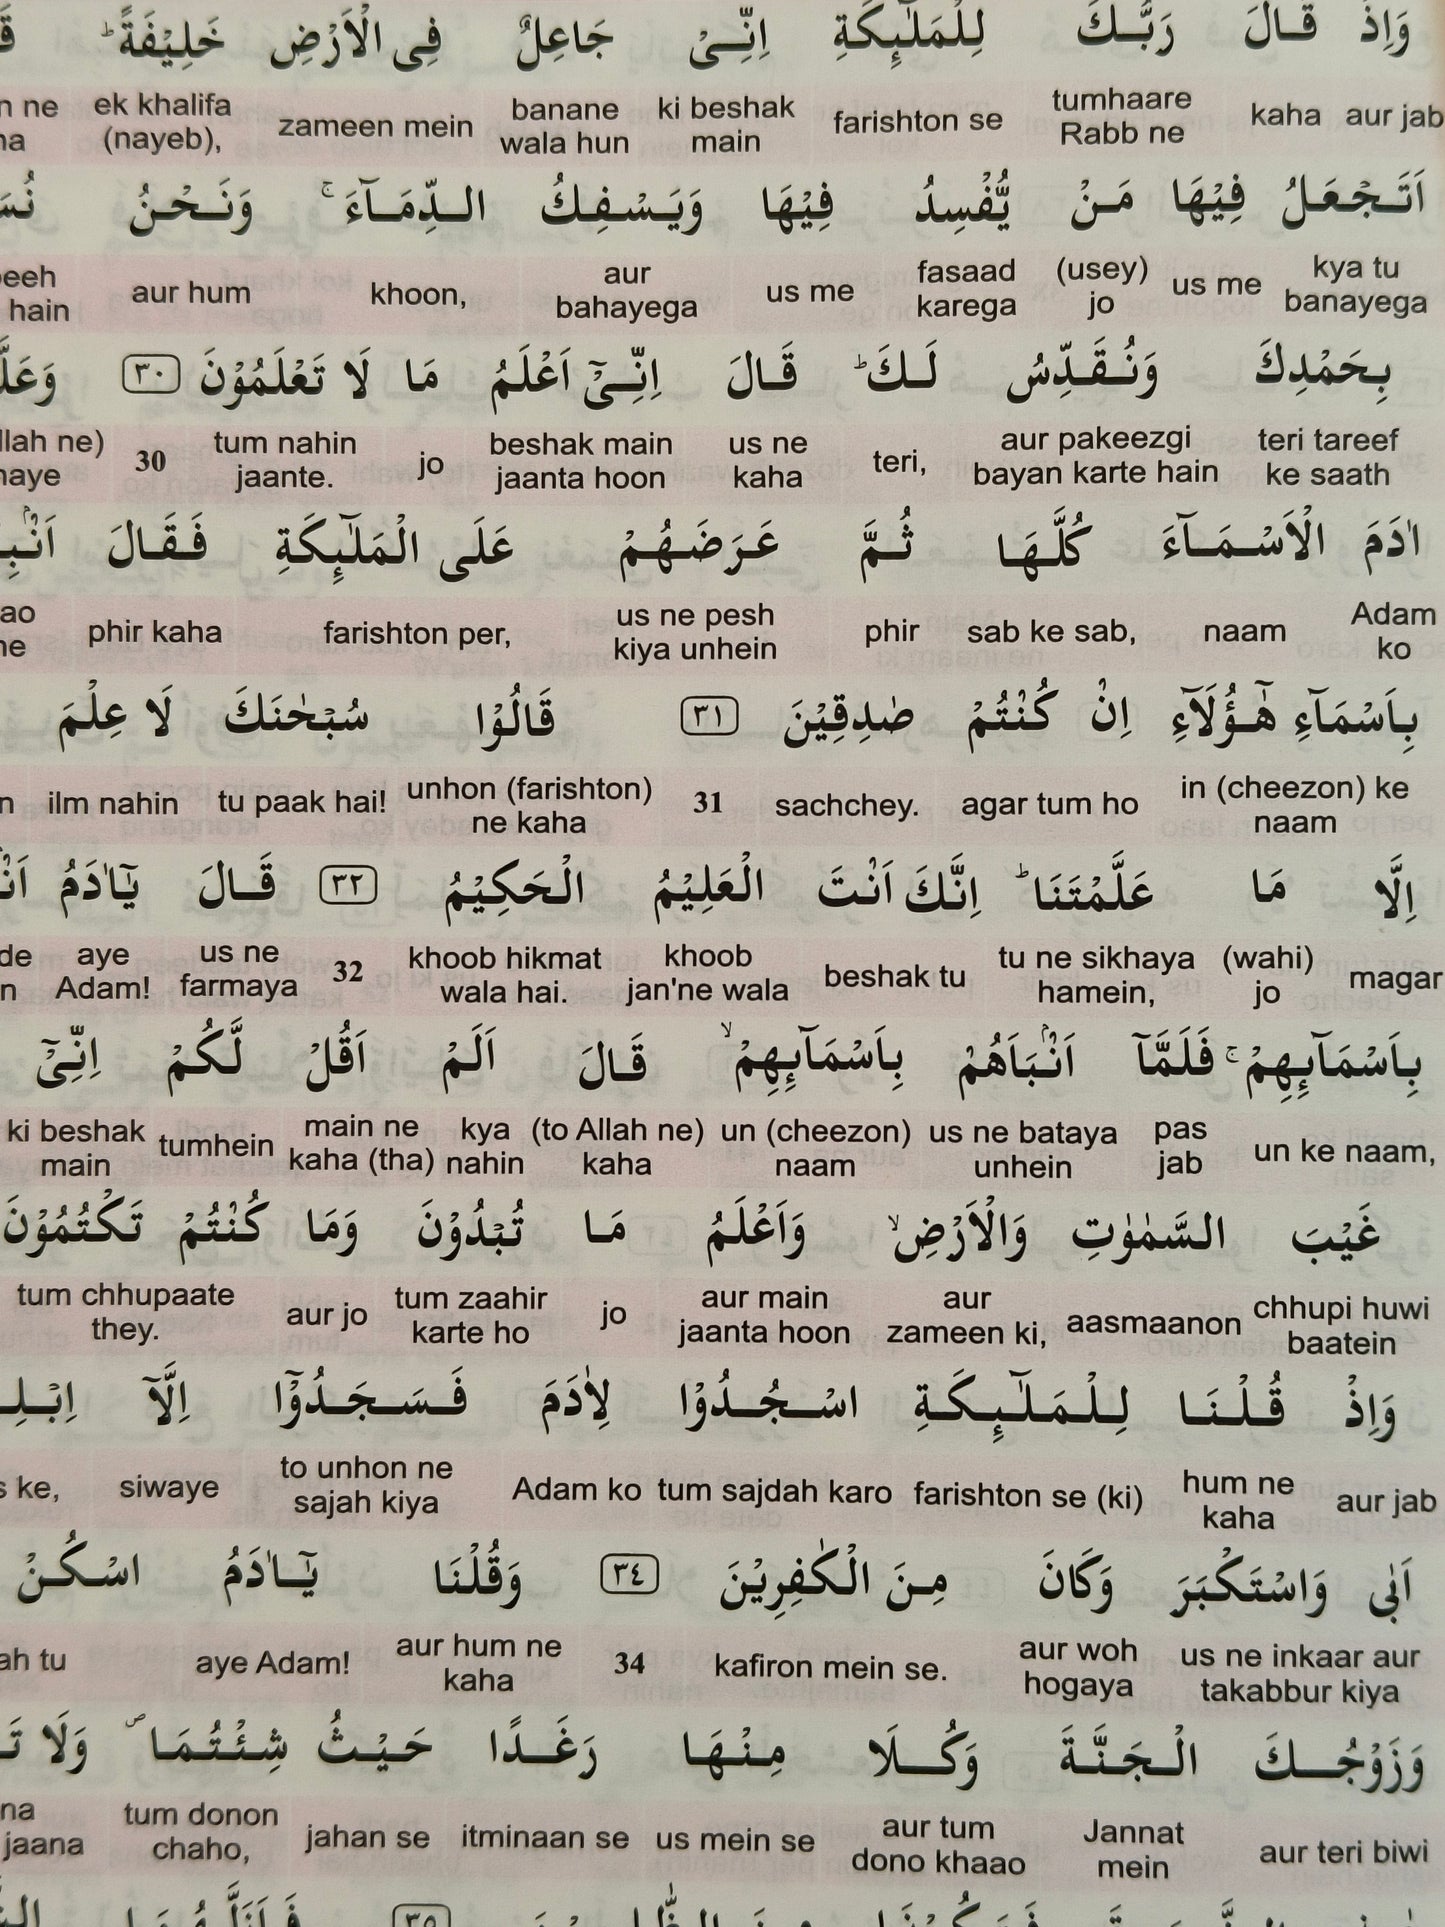 وَاِذْ قَالَ رَبُّكَ لِلْمَلٰٓئِكَةِ اِنِّىْ جَاعِلٌ فِى الْاَرْضِ خَلِيْفَةً ؕ
aur jab kaha tumhaare Rabb ne farishton se ki beshak main banane wala hun zameen mein ek khalifa (nayeb),
اَتَجْعَلُ فِيْهَا مَنْ يُّفْسِدُ فِيْهَا وَيَسْفِكُ الدِّمَآءَ ۚ وَنَحْنُ
kya tu banayega us me (usey) jo fasaad karega us me aur bahayega khoon, aur hum
بِحَمْدِكَ وَنُقَدِّسُ لَكَ ؕ قَالَ اِنِّىْٓ اَعْلَمُ مَا لَا تَعْلَمُوْنَ ٣٠
teri tareef ke saath aur pakeezgi bayan karte hain teri, us ne kaha beshak main jaanta hoon jo tum nahin jaante. 30
اٰدَمَ الْاَسْمَآءَ كُلَّهَا ثُمَّ عَرَضَهُمْ عَلَى الْمَلٰٓئِكَةِ فَقَالَ
Adam ko naam sab ke sab, phir us ne pesh kiya unhein farishton per, phir kaha
بِاَسْمَآءِ هٰٓؤُلَآءِ اِنْ كُنْتُمْ صٰدِقِيْنَ ٣١ قَالُوْا سُبْحٰنَكَ لَا عِلْمَ
in (cheezon) ke naam agar tum ho sachchey. 31 unhon (farishton) ne kaha tu paak hai! ilm nahin
اِلَّا مَا عَلَّمْتَنَا ؕ اِنَّكَ اَنْتَ الْعَلِيْمُ الْحَكِيْمُ ٣٢ قَالَ يٰٓاٰدَمُ
magar (wahi) jo tu ne sikhaya hamein, beshak tu khoob jan'ne wala khoob hikmat wala hai. 32 us ne farmaya aye Adam!
بِاَسْمَآئِهِمْ ۚ فَلَمَّآ اَنْۢبَاَهُمْ بِاَسْمَآئِهِمْ ۙ قَالَ اَلَمْ اَقُلْ لَّكُمْ اِنِّىْٓ
un ke naam, pas jab us ne bataya unhein un (cheezon) naam (to Allah ne) kaha kya nahin main ne kaha (tha) tumhein ki beshak main
غَيْبَ السَّمٰوٰتِ وَالْاَرْضِ ۙ وَاَعْلَمُ مَا تُبْدُوْنَ وَمَا كُنْتُمْ تَكْتُمُوْنَ
chhupi huwi baatein aasmaanon aur zameen ki, aur main jaanta hoon jo tum zaahir karte ho aur jo tum chhupaate they.
وَاِذْ قُلْنَا لِلْمَلٰٓئِكَةِ اسْجُدُوْا لِاٰدَمَ فَسَجَدُوْٓا اِلَّآ
aur jab hum ne kaha farishton se (ki) tum sajdah karo Adam ko to unhon ne sajah kiya siwaye ke,
اَبٰى وَاسْتَكْبَرَ وَكَانَ مِنَ الْكٰفِرِيْنَ ٣٤ وَقُلْنَا يٰٓاٰدَمُ اسْكُنْ
us ne inkaar aur takabbur kiya aur woh hogaya kafiron mein se. 34 aur hum ne kaha aye Adam! tu
وَزَوْجُكَ الْجَنَّةَ وَكُلَا مِنْهَا رَغَدًا حَيْثُ شِئْتُمَا ۪ وَلَا
aur teri biwi Jannat mein aur tum dono khaao us mein se itminaan se jahan se tum donon chaho, jaana